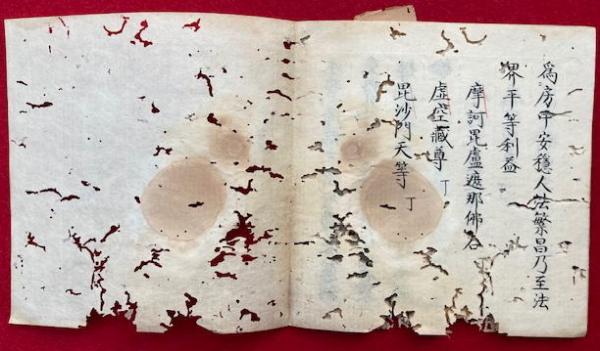 為房中安穩人法繁昌乃至法
界平等利益
摩訶毘盧遮那佛名
虛空藏尊 丁
毘沙門天等 丁